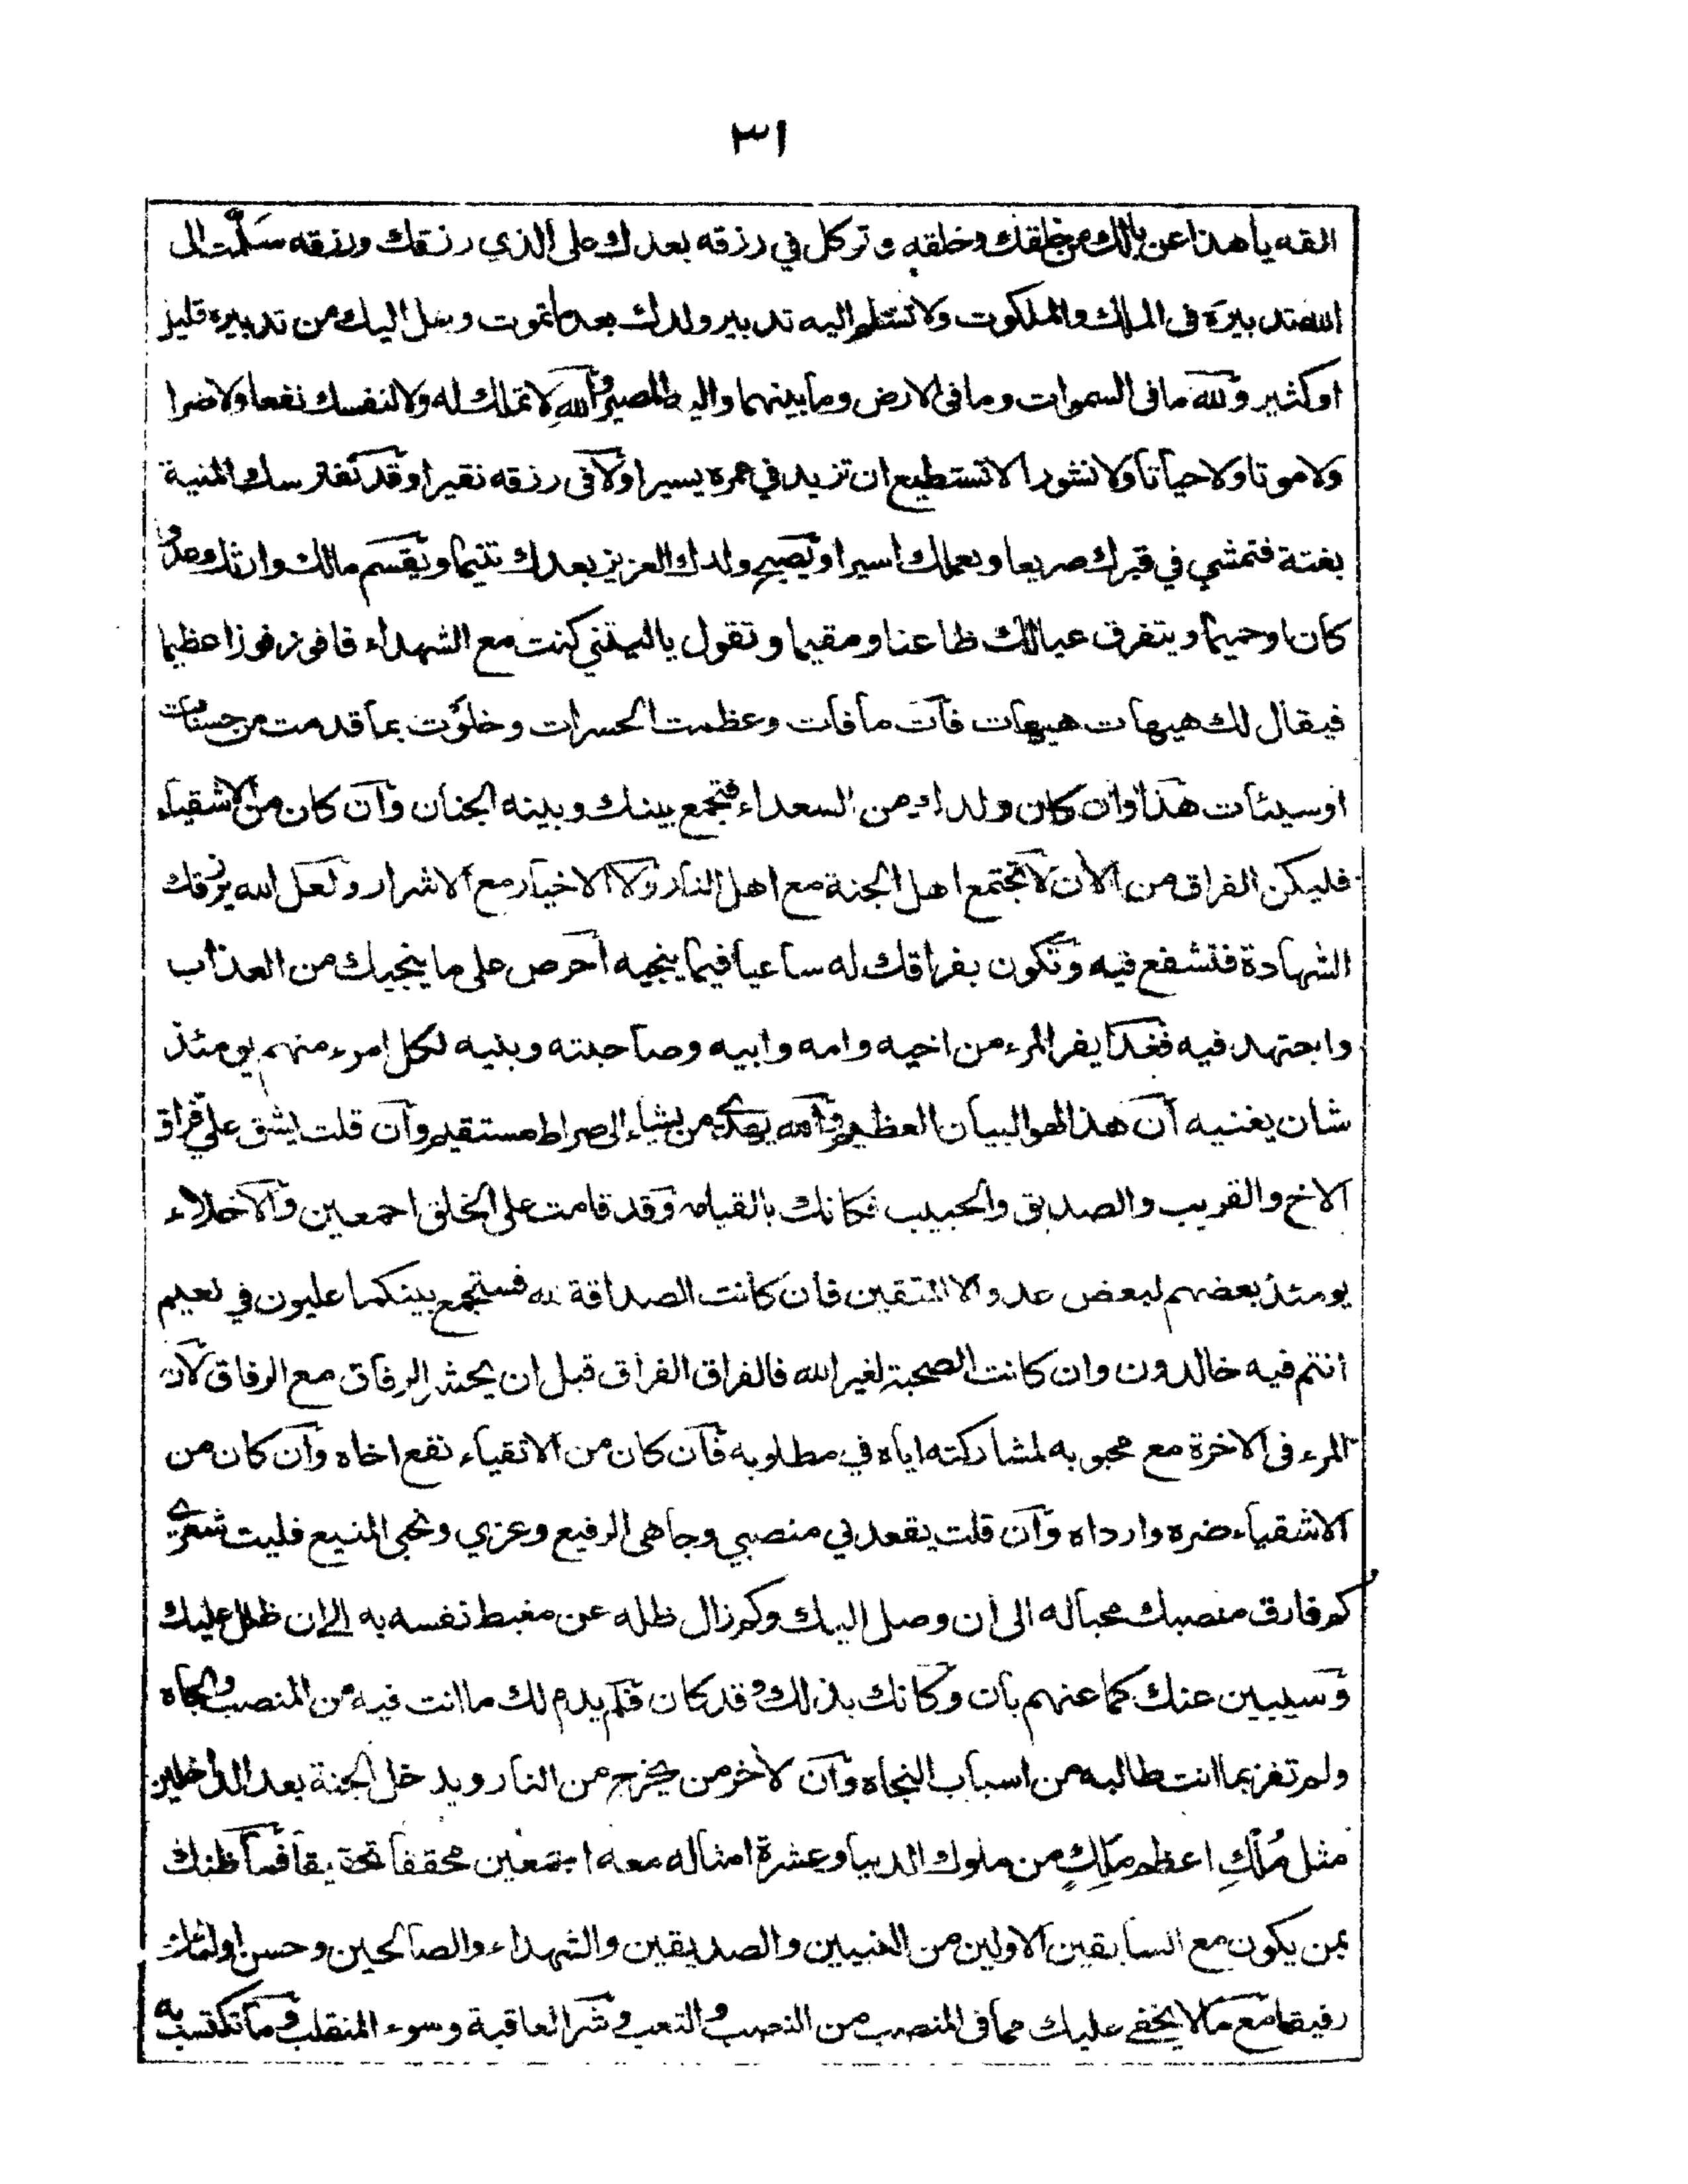 ٣١
القه يا هذا عن بالك من خلقك وخلقه وتوكل في رزقه بعدك على الذي رزقك ورزقه سلمت الى
الله تدبيره فى الملك والملكوت ولا تسلم اليه تدبير ولدك بعد ما تموت وهل اليك من تدبيره قليل
او كثير ولله ما فى السموات وما فى الارض وما بينهما واليه المصير والله لا تملك له ولا لنفسك نفعا ولا ضرا
ولا موتا ولا حياتا ولا نشورا لا تستطيع ان تزيد في عمره يسيرا ولا فى رزقه نقيرا وقد تفترسك المنية
بغتة فتمشي في قبرك صريعا وبعملك اسيرا ويصبح ولدك العزيز بعدك يتيما ويقسم مالك وارثك وعدوا
كان او حميما ويتفرق عيالك ظاعنا ومقيما وتقول يا ليتني كنت مع الشهداء فافوز فوزا عظيما
فيقال لك هيهات هيهات فات ما فات وعظمت الحسرات وخلوت بما قدمت من حسنات
او سيئات هذا وان كان ولدك من السعداء فتجمع بينك وبينه الجنان وان كان من الاشقياء
فليكن الفراق من الان لا تجتمع اهل الجنة مع اهل النار ولا الاخيار مع الاشرار ولعل الله يرزقك
الشهادة فتشفع فيه وتكون بفراقك له ساعيا فيما ينجيه احرص على ما ينجيك من العذاب
واجتهد فيه فغدا يفر المرء من اخيه وامه وابيه وصاحبته وبنيه لكل امرء منهم يومئذ
شان يغنيه ان هذا لهو البيان العظيم والله يهدي من يشاء الى صراط مستقيم وان قلت يشق علي فراق
الاخ والقريب والصديق والحبيب فكانك بالقيامه وقد قامت على الخلق اجمعين والاخلاء
يومئذ بعضهم لبعض عدو الا المتقين فان كانت الصداقة لله فستجمع بينكما عليون في نعيم
انتم فيه خالدون وان كانت الصحبة لغير الله فالفراق الفراق قبل ان يحشر الرفاق مع الرفاق لان
المرء فى الاخرة مع محبوبه لمشاركته اياه في مطلوبه فان كان من الاتقياء نفع اخاه وان كان من
الاشقياء ضره وارداه وان قلت يقعد بي منصبي وجاهى الرفيع وعزي وحجبى المنيع فليت شعري
كم فارق منصبك محبا له الى ان وصل اليك وكم زال ظله عن مغبط نفسه به الى ان ظلل عليك
وسيبين عنك كما عنهم بان وكانك بذلك وقد كان فلم يدم لك ما انت فيه من المنصب والجاه
ولم تفز بما انت طالبه من اسباب النجاه وان لاخر من يخرج من النار ويدخل الجنة بعد الداخلين
مثل مُلْكِ اعظم مَلِكٍ من ملوك الدنيا وعشرة امثاله معه اجمعين محققا تحقيقا فما ظنك
بمن يكون مع السابقين الاولين من النبيين والصديقين والشهداء والصالحين وحسن اولئك
رفيقا مع ما لا يخفى عليك مما فى المنصب من النصب والتعب وشر العاقبة وسوء المنقلب وما تكتسب به